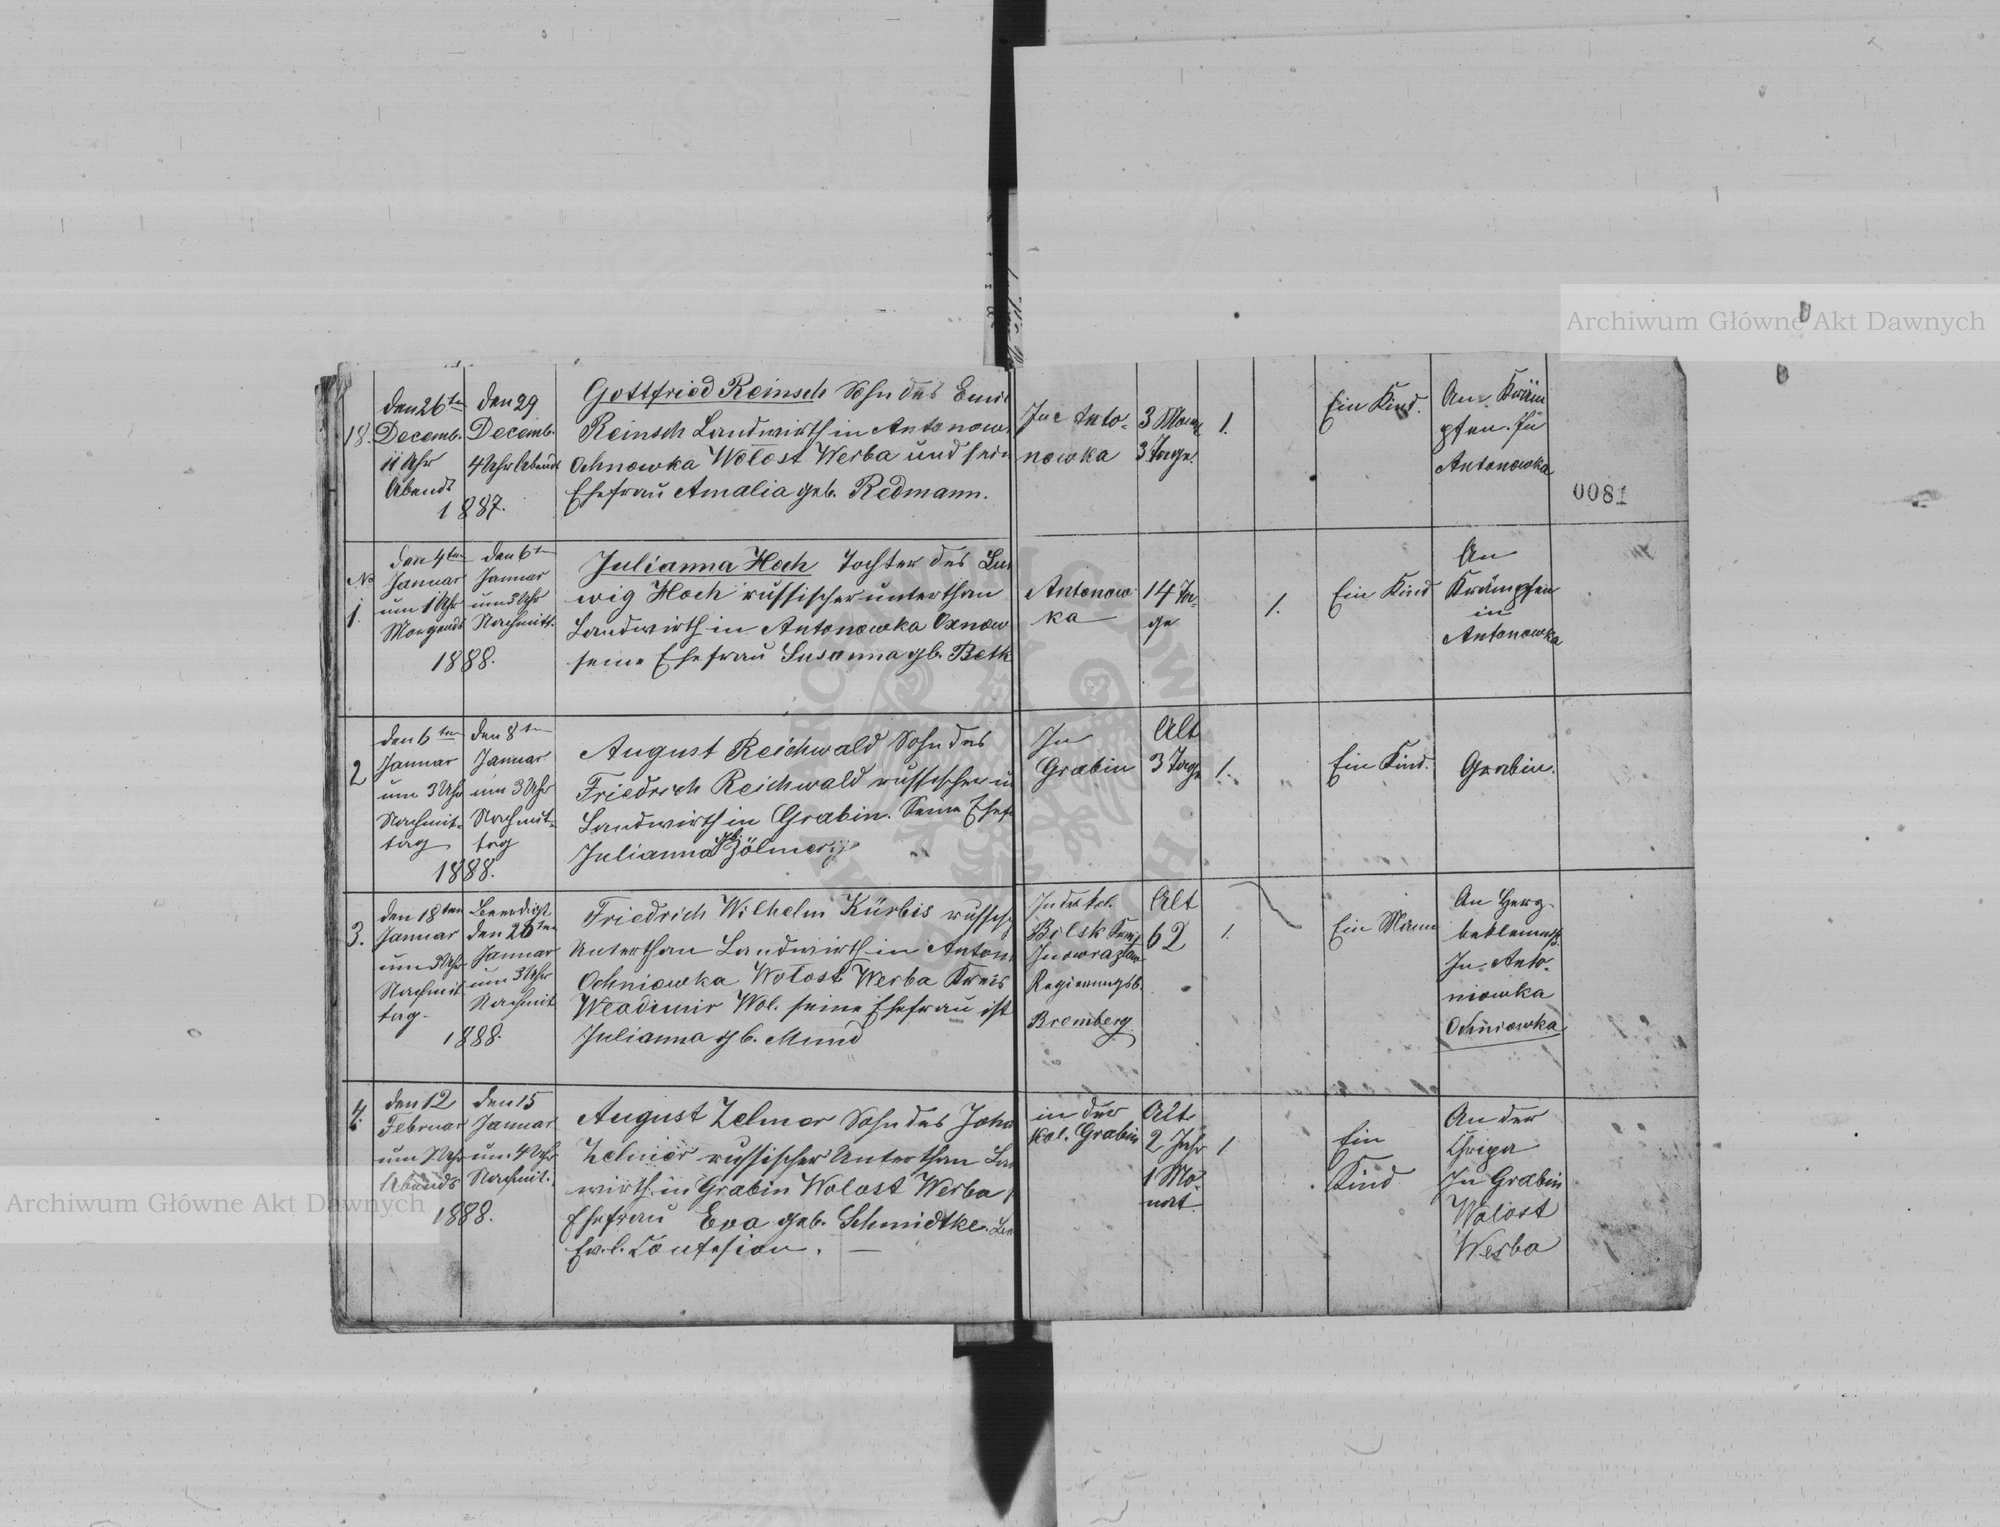 Archiwum Główne Akt Dawnych
0081
18.
den 26ten
Decemb.
11 Uhr
Abends
den 29
Decemb.
4 Uhr Abends
1887.
Gottfried Reinsch Sohn des
Reinsch Landwirth in Antonow
Ochnowka Wolost Werba und
Ehefrau Amalia geb. Redmann.
In Anto-
nowka
3 Mon
3 Tage.
1.
Ein Kind.
An Kräm
pfen. In
Antonowka
No
1.
den 4ten
Januar
um 1 Uhr
Morgends
den 6ten
Januar
um 3 Uhr
Nachmitt.
1888.
Julianna Hoch Tochter des Lud
wig Hoch russischer unterthan
Landwirth in Antonowka Oxnow
seine Ehefrau Susanna gb. Betk
Antonow
ka
14 Ta-
ge
1.
Ein Kind
An
Krämpfen
in
Antonowka
2
den 6ten
Januar
um 3 Uhr
Nachmit-
tag
den 8ten
Januar
um 3 Uhr
Nachmit-
tag
1888.
August Reichwald Sohn des
Friedrich Reichwald russischer u
Landwirth in Grabin. Seine Ehef
Julianna gb. Zölmer
In
Grabin
Alt
3 Tage
1.
"
Ein Kind.
Grabin.
3.
den 18ten
Januar
um 3 Uhr
Nachmit
tag.
Beerdigt
den 26ten
Januar
um 3 Uhr
Nachmit
1888.
Friedrich Wilhelm Kürbis russisch
Unterthan Landwirth in Anton
Ochniowka Wolost Werba Kreis
Wladimir Wol. seine Ehefrau ist
Julianna gb. Mund
In der Kol.
Bolsk Kreis
Inowrazlaw
Regierungsb.
Bromberg
Alt
62
1.
Ein Mann
An Herz-
beklemung
In Anto-
niowka
Ochniowka
4.
den 12
Februar
um Uhr
Abends
den 15
Januar
um 4 Uhr
Nachmit.
1888.
August Zelmer Sohn des Joha
Zelmer russischer Unterthan La
wirth in Grabin Wolost Werba
Ehefrau Eva geb. Schmidtke.
Ev. l. Confesion. —
in der
Kol. Grabin
Alt
2 Jahr
1 Mo-
nat.
1
Ein
Kind
An der
In Grabin
Wolost
Werba
Archiwum Główne Akt Dawnych